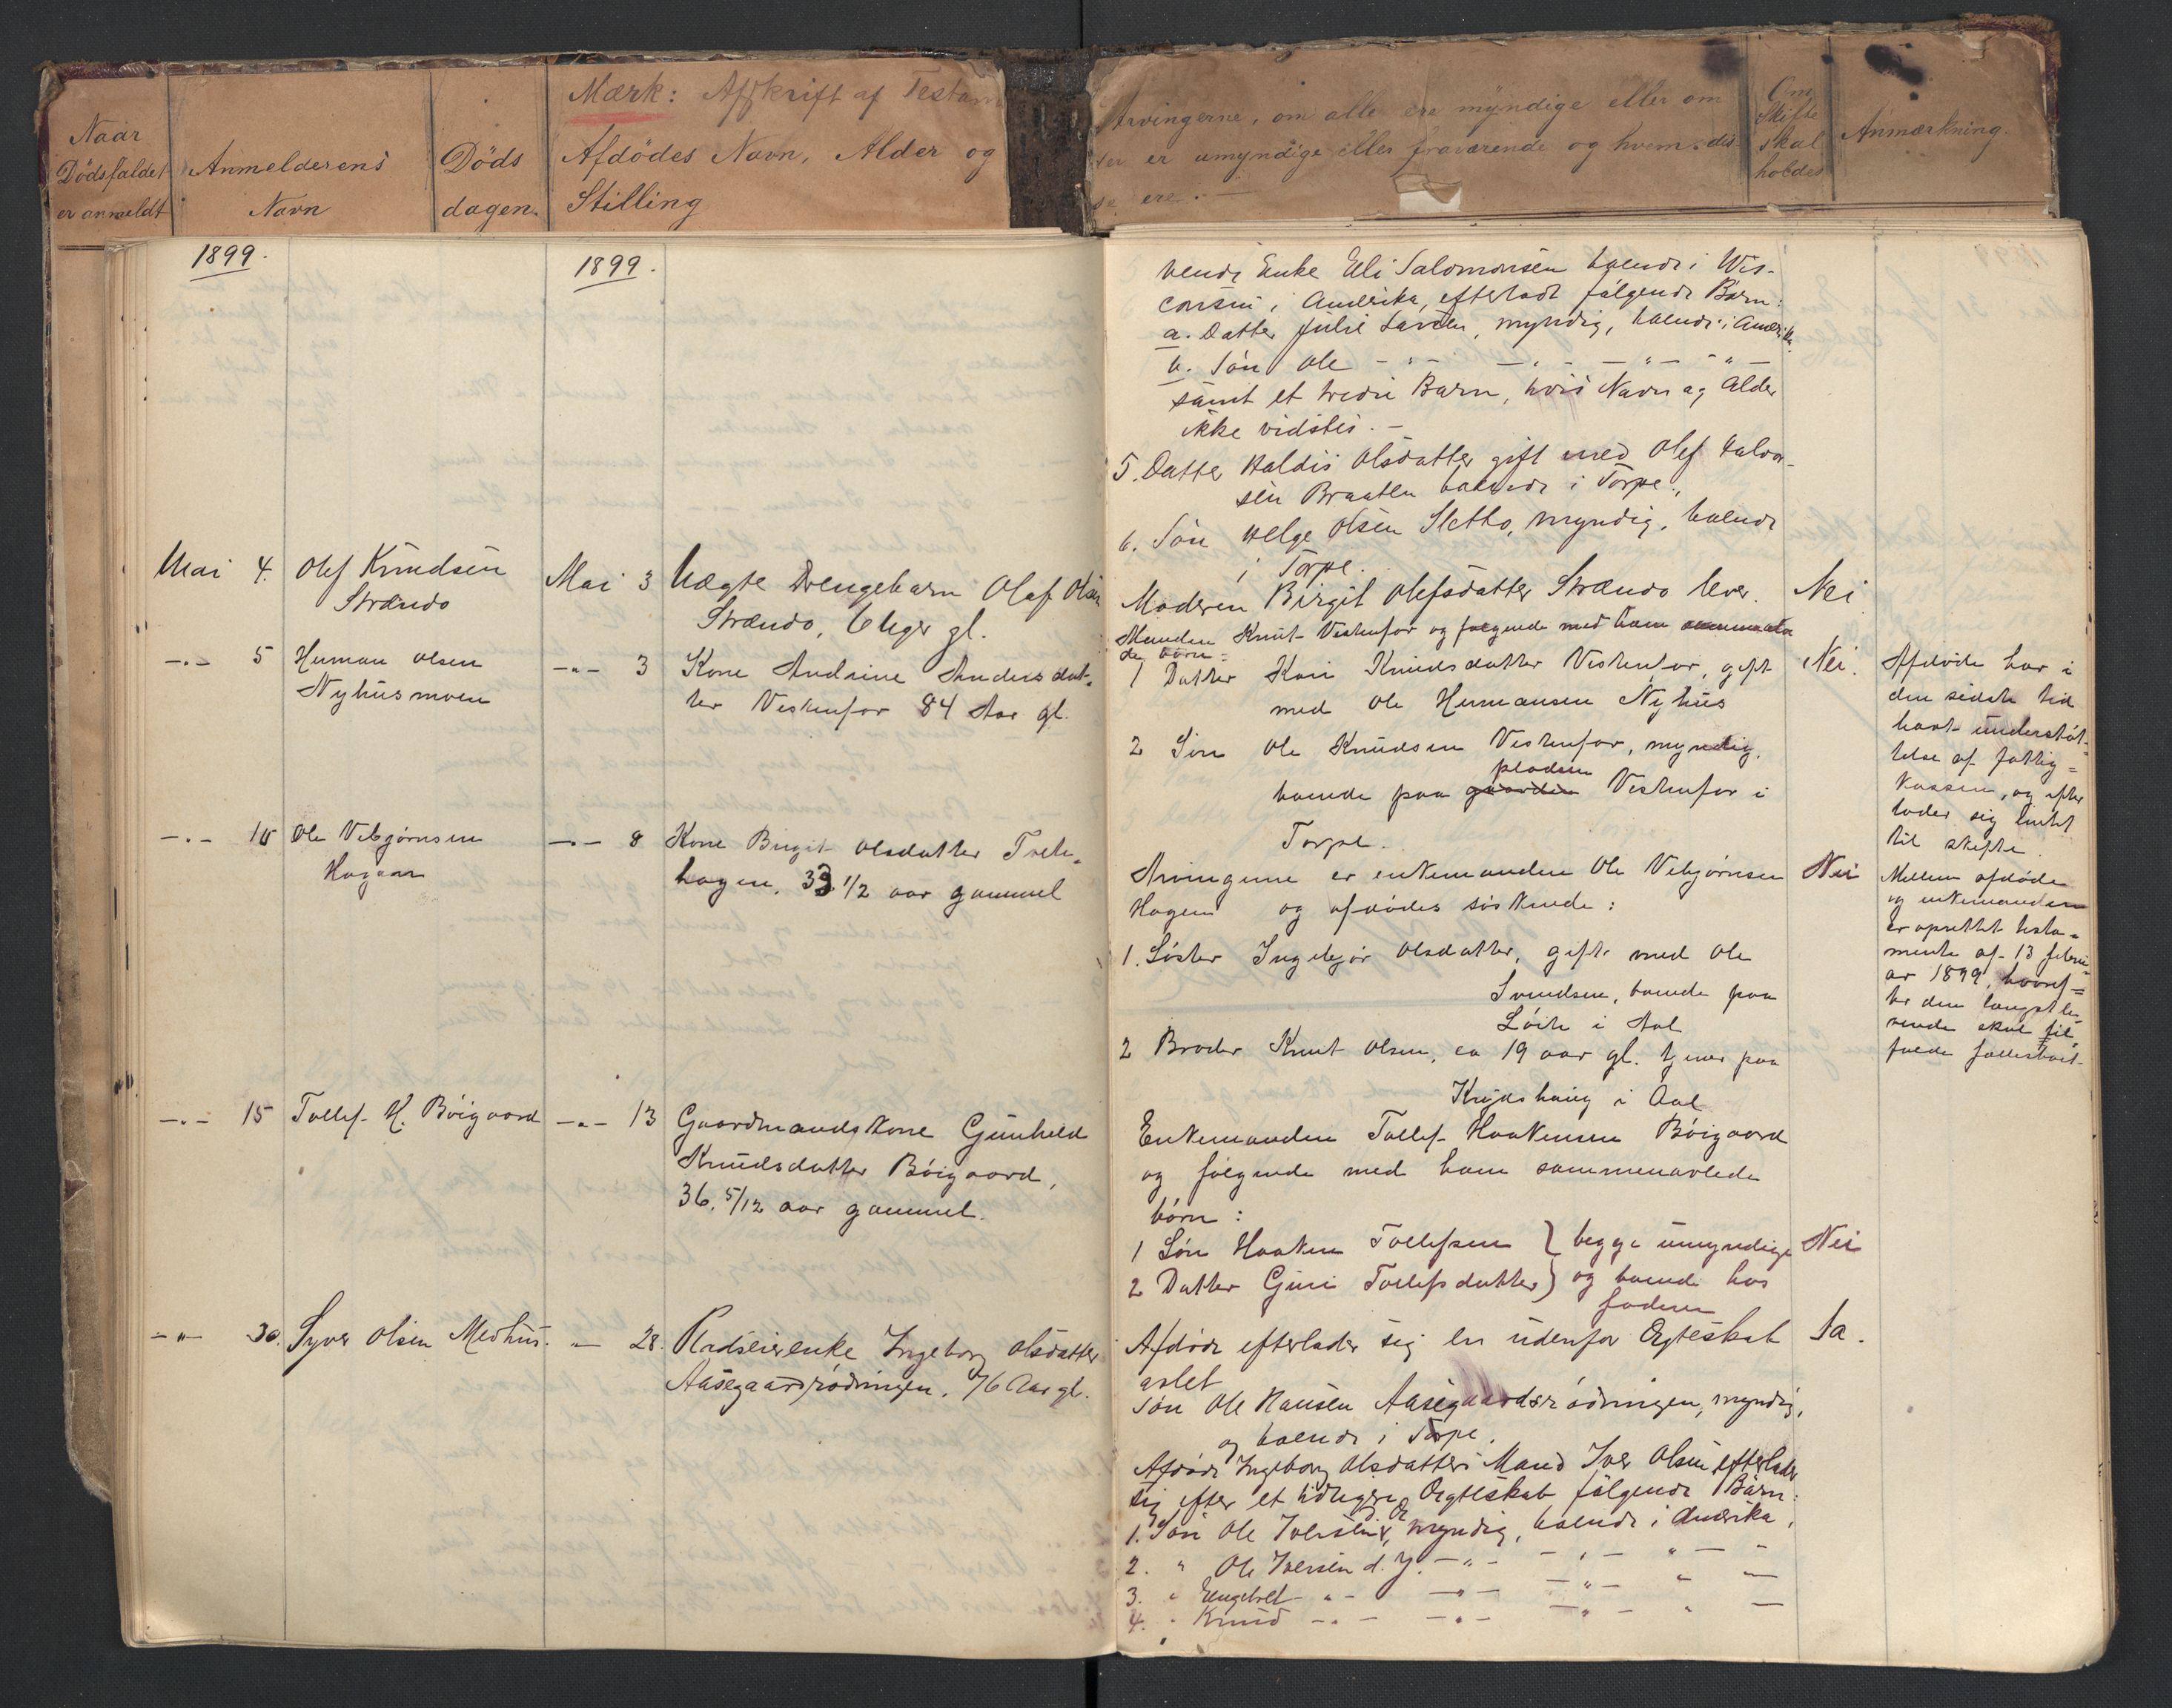 Mærk: Afskrift af Testam
Naar
Dödsfaldet
er anmeldt
Anmelderens
Navn
Döds
dagen.
Afdödes Navn, Alder og
Stilling
Arvingerne, om alle ere myndige eller om
er umyndige eller fraværende og hvem dis
se ere.
Om
Skifte
skal
holdes
Anmærkning.
1899.
1899.
vende Enke Eli Salomonsen boende i Wis-
consin i Amerika, efterladt følgende Børn:
a. Datter Julie Larsen, myndig, boende i Amerika
b. Søn Ole - " - - " - - " - " -
samt et tredie Barn, hvis Navn og Alder
ikke vidstes. -
5. Datter Haldis Olsdatter gift med Olef Halvor-
sen Braaten boende i Torpe.
6. Søn Helge Olsen Sletto, myndig, boende
i Torpe.
Mai 4. Olef Knudsen
Strando
Mai 3 Uægte Drengebarn Olaf Olsen
Strando, 6 Uger gl.
Moderen Birgit Olefsdatter Strando lever. Nei
-"- 5 Herman Olsen
Nyhusmoen
-"- 3 Kone Andrine Andersdat-
ter Vestenfor 84 Aar gl.
Manden Knut Vestenfor og følgende med ham
de børn:
1 Datter Kari Knudsdatter Vestenfor, gift Nei.
med Ole Hermansen Nyhus
2 Søn Ole Knudsen Vestenfor, myndig,
pladsen
boende paa gaarden Vestenfor i
Torpe.
Afdøde har i
den sidste tid
havt understøt-
telse af fattig=
kassen, og efter
lader sig intet
til skifte.
-"- 10 Ole Vebjørnsen
Hagen
-"- 8 Kone Birgit Olsdatter Tvete-
hagen, 33 1/2 aar gammel
Arvingerne er enkemanden Ole Vebjørnsen Nei
Hagen og afdødes søskende:
1. Søster Ingebjør Olsdatter, gift med Ole
Svendsen, boende paa
Løite i Aal
2 Broder Knut Olsen, ca 19 aar gl. tjener paa
i Aal
Mellem afdøde
og enkemanden
er oprettet testa-
mente af 13 febru=
ar 1899, hvoref=
ter den længstle-
vende skal til,
falde fællesboet
-"- 15 Tollef H. Bøigaard
-"- 13 Gaardmandskone Gunhild
Knudsdatter Bøigaard,
36. 5/12 aar gammel.
Enkemanden Tollef Haakensen Bøigaard
og følgende med ham sammenavlede
børn:
1 Søn Haaken Tollefsen } begge umyndige Nei
2 Datter Guri Tollefsdatter } og boende hos
faderen
-"- 30. Syver Olsen Medhus.
-"- 28. Pladseierenke Ingeborg Olsdatter
Aasegaardsrødningen, 76 Aar gl.
Afdøde efterlader sig en udenfor Ægteskab Ja.
avlet
Søn Ole Hansen Aasegaardsrødningen, myndig,
og boende i Torpe.
Afdøde Ingeborg Olsdatters Mand Iver Olsen efterlader
sig efter et tidligere Ægteskab følgende Børn:
1. Søn Ole Iversen d. Æ, myndig, boende i Amerika,
2. " Ole Iversen d. y. - " - - " - " - -
3. " Engebret - " - - " - - " - " -
4. " Knud - " - - " - - " - " -